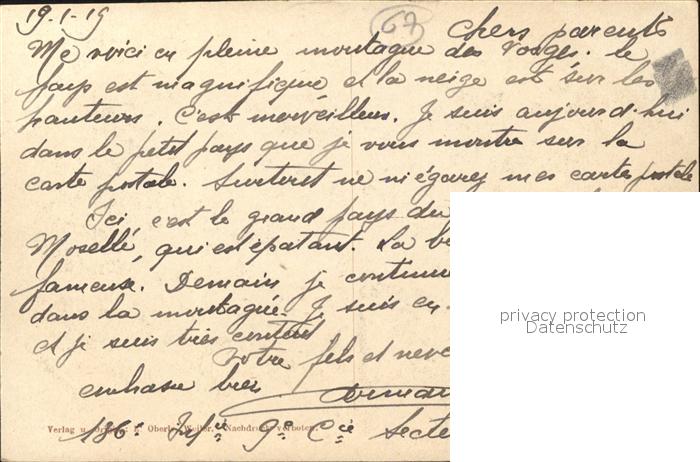 19-1-19
67
Chers parents
Me voici en pleine montagne des Vosges. le
pays est magnifique et la neige est sur les
hauteurs. C'est merveilleux. Je suis aujourd'hui
dans le petit pays que je vous montre sur la
carte postale. Surtout ne m'égarez mes cartes postale
Ici c'est le grand pays du
Moselle, qui est épatant. La b
fameuse. Demain je continue
dans la montagne. Je suis en
et je suis très content
Votre fils et neve
embrasse bien
186e Infie 9e Cie Secte
Verlag u. Oberle, Weiler. Nachdruck verboten.
privacy protection
Datenschutz